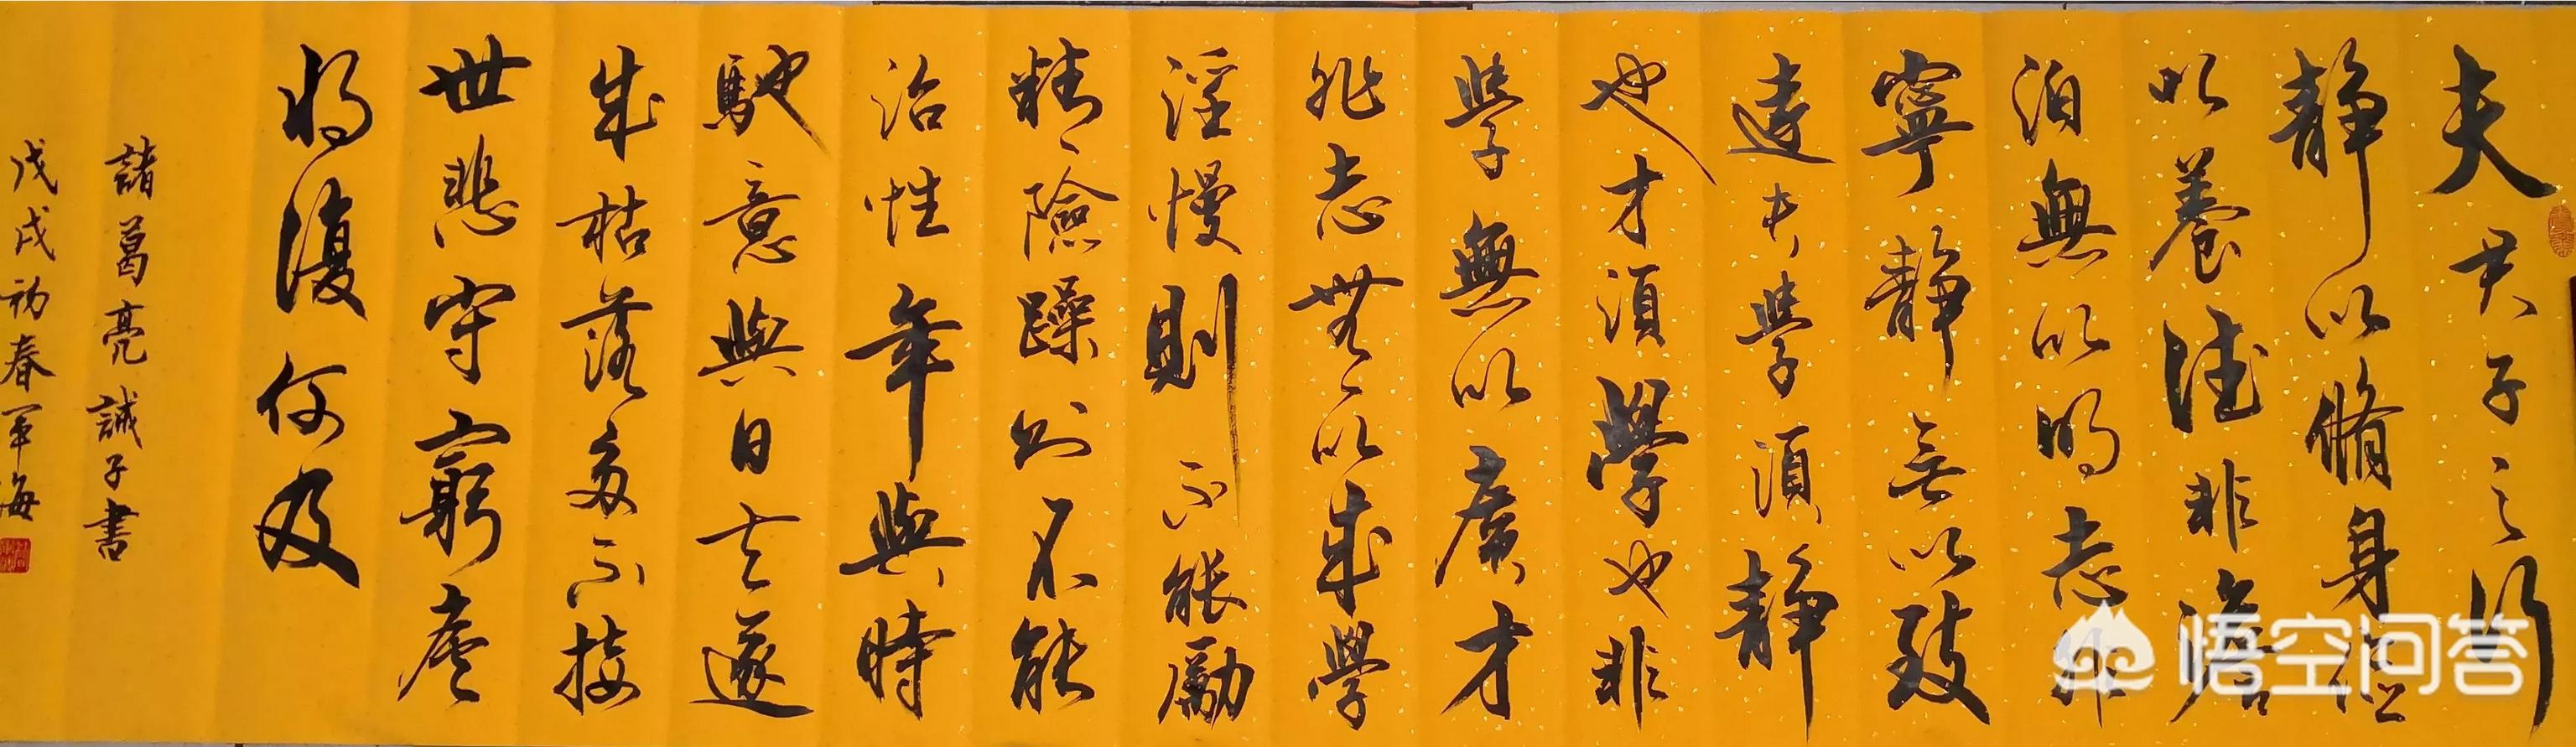 夫君子之行
静以脩身儉
以養德非澹
泊無以明志非
寧静無以致
遠夫學須静
也才須學也非
學無以廣才
非志無以成學
淫慢則不能勵
精險躁則不能
治性年與時
馳意與日去遂
成枯落多不接
世悲守窮廬
將復何及
諸葛亮誡子書
戊戌初春軍海
悟空问答